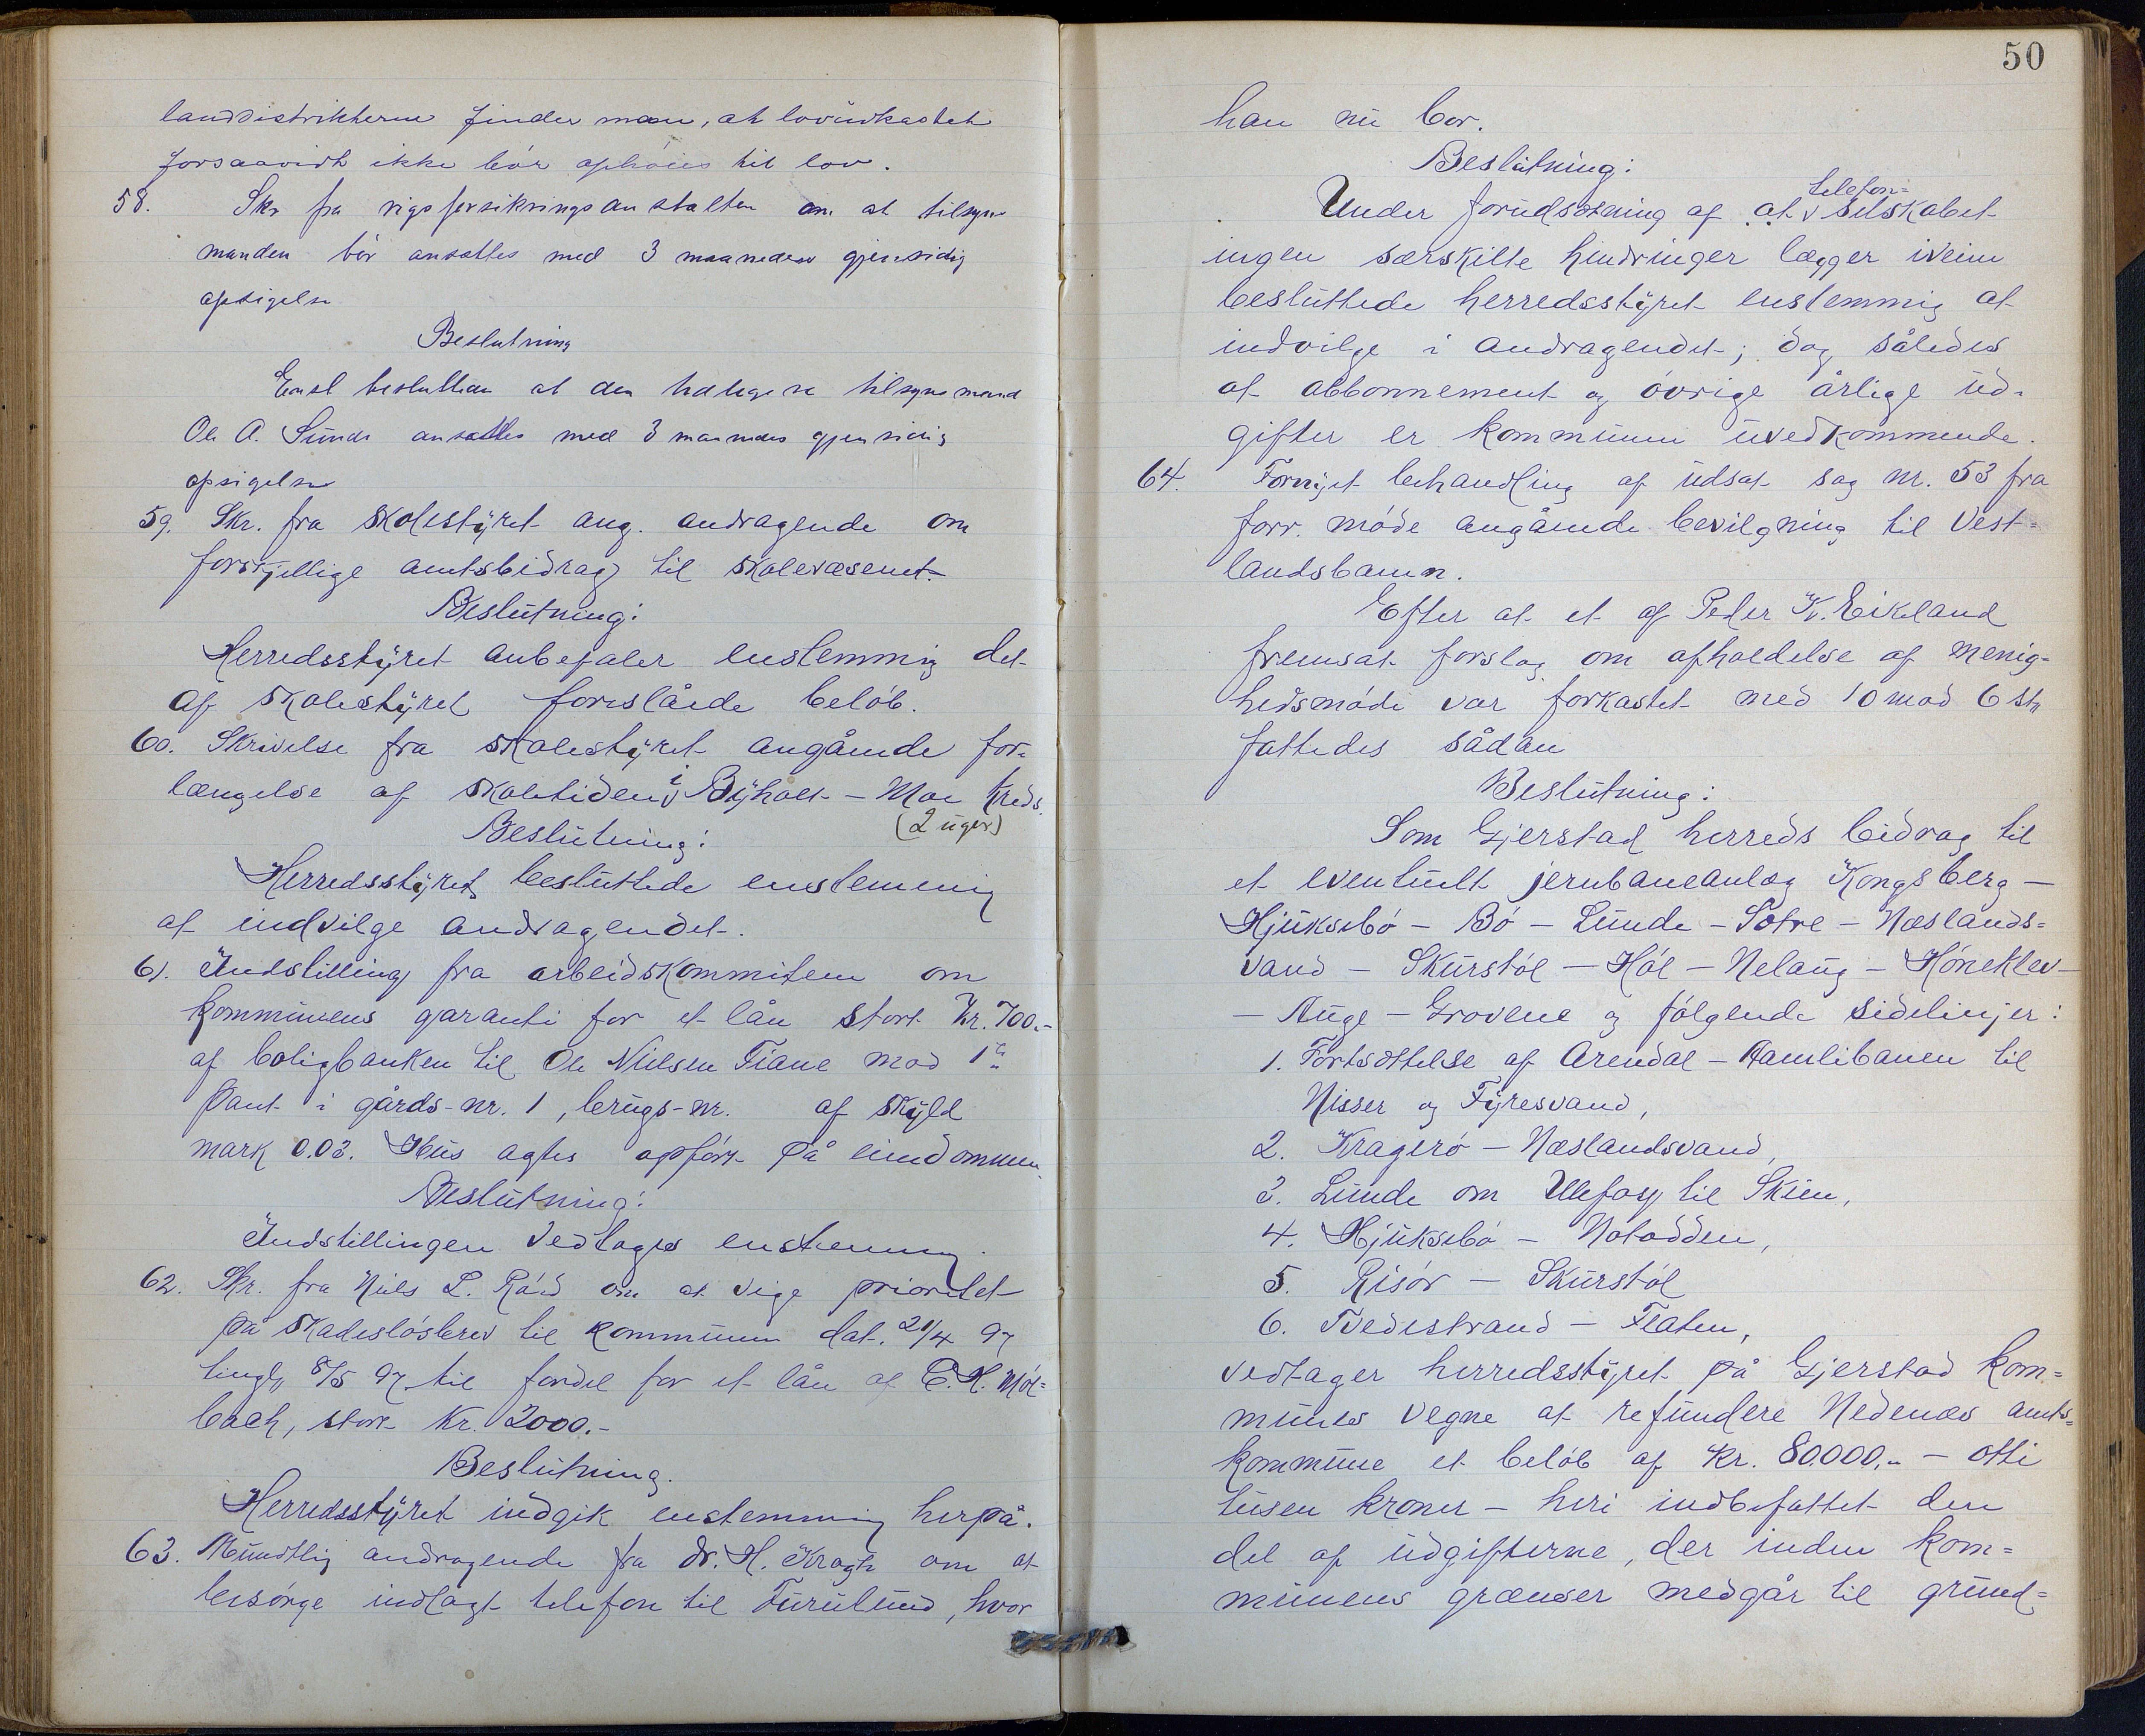 landdistrikterne finder man, at lovudkastet
forsaavidt ikke bör ophöies til lov.
58. Skr fra rigsforsikringsanstalten om at tilsyns
manden bör ansættes med 3 maaneders gjensidig
opsigelse
Beslutning
Enst besluttedes at den tidligere tilsynsmand
Ole A. Sunde ansættes med 3 maaneders gjensidig
opsigelse
59. Skr. fra skolestyret ang. andragende om
forskjellige amtsbidrag til skolevæsenet.
Beslutning:
Herredsstyret anbefaler enstemmig det
af skolestyret foreslåede belöb.
60. Skrivelse fra skolestyret angående for-
længelse af skoletiden i Byholt - Moe kreds.
(2 uger)
Beslutning:
Herredsstyret besluttede enstemmig
at indvilge andragendet.
61. Indstilling fra arbeidskommiteen om
kommunens garanti for et lån stort kr. 700.-
af boligbanken til Ole Nielsen Fiane mod 1ste
pant i gårds-nr. 1, brugs-nr. af skyld
mark 0.03. Hus agtes opfört på eiendommen.
Beslutning:
Indstillingen vedtages enstemmig.
62. Skr. fra Niels L. Röed om at vige prioritet
på skadeslösbrev til kommunen dat. 21/4 97
tingl. 8/5 97 til fordel for et lån af E. H. Möl-
bach, stort kr. 2000.-
Beslutning.
Herredsstyret indgik enstemmig herpå.
63. Mundtlig andragende fra dr. H. Kragh om at
besörge indlagt telefon til Furulund, hvor
50
han nu bor.
Beslutning:
telefon-
Under forudsætning af at selskabet
ingen særskilte hindringer lægger iveien
besluttede herredsstyret enstemmig at
indvilge i andragendet; dog således
at abbonnement og övrige årlige ud-
gifter er kommunen uvedkommende.
64. Fornyet behandling af udsat sag nr. 53 fra
forr. möde angående bevilgning til Vest-
landsbanen.
Efter at et af Peder K. Eikeland
fremsat forslag om afholdelse af menig-
hedsmöde var forkastet med 10 mod 6 st.
fattedes sådan
Beslutning:
Som Gjerstad herreds bidrag til
et eventuelt jernbaneanlæg Kongsberg -
Hjuksebö - Bö - Lunde - Sætre - Næslands-
vand - Skurstöl - Höl - Nelaug - Höneklev -
- Auge - Grovene og fölgende sidelinjer:
1. Fortsættelse af Arendal - Aamlibanen til
Nisser og Fyresvand,
2. Kragerö - Næslandsvand,
3. Lunde om Ulefos til Skien,
4. Hjuksebö - Notodden,
5. Risör - Skurstöl
6. Tvedestrand - Flaten,
vedtager herredsstyret på Gjerstad kom-
munes vegne at refundere Nedenæs amts-
kommune et belöb af kr. 80.000,- - otti
tusen kroner - heri indbefattet den
del af udgifterne, der inden kom-
munens grænser medgår til grund-